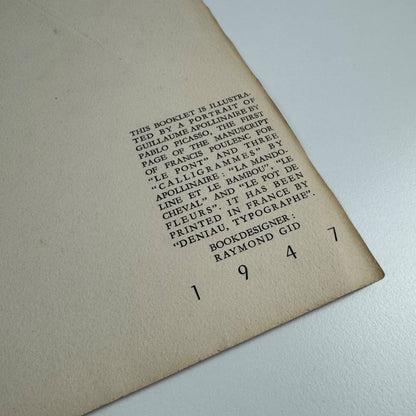 THIS BOOKLET IS ILLUSTRA-
TED BY A PORTRAIT OF
GUILLAUME APOLLINAIRE BY
PABLO PICASSO, THE FIRST
PAGE OF THE MANUSCRIPT
OF FRANCIS POULENC FOR
"LE PONT" AND THREE
"CALLIGRAMMES" BY
APOLLINAIRE : "LA MANDO-
LINE ET LE BAMBOU", "LE
CHEVAL" AND "LE POT DE
FLEURS". IT HAS BEEN
PRINTED IN FRANCE BY
"DENIAU, TYPOGRAPHE".
BOOKDESIGNER :
RAYMOND GID
1947